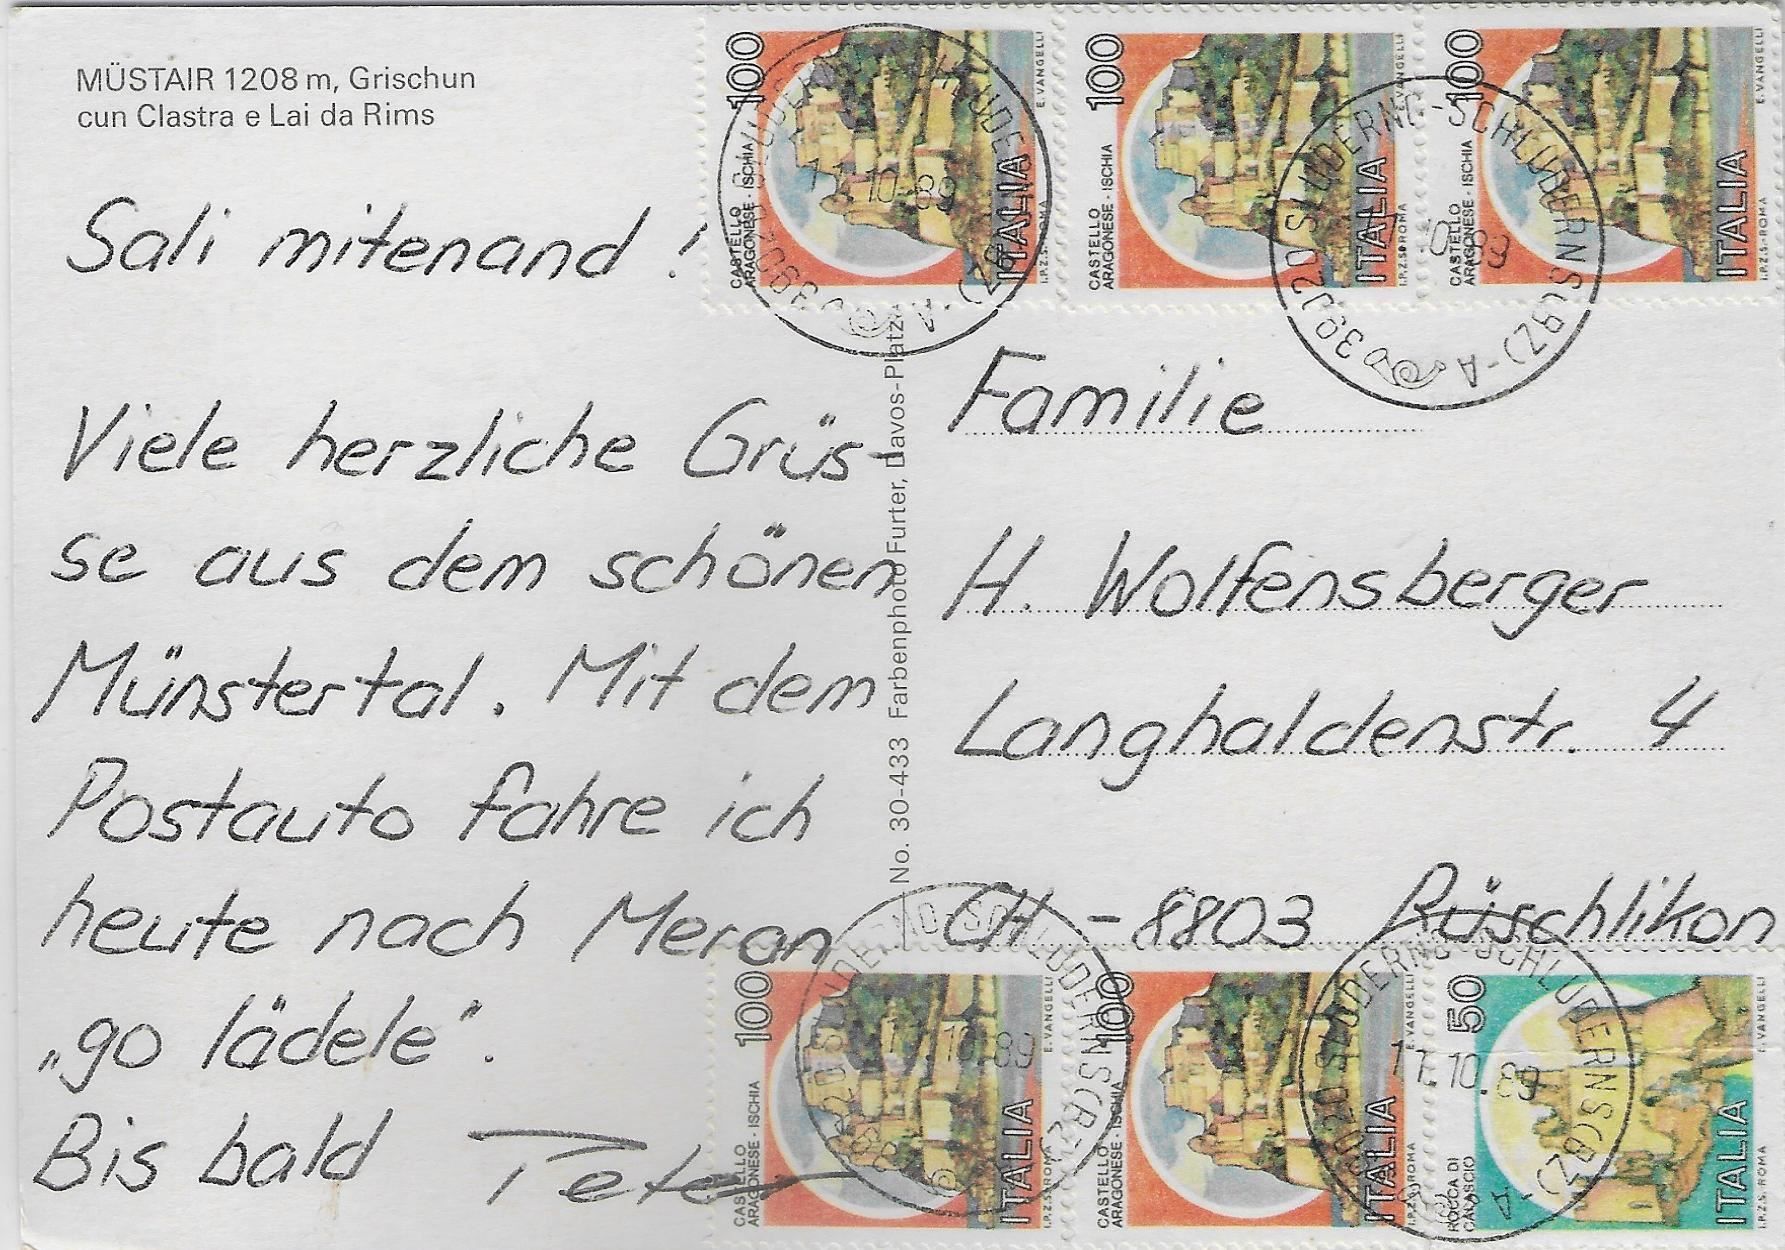 MÜSTAIR 1208 m, Grischun
cun Clastra e Lai da Rims
Sali mitenand !
Viele herzliche Grüs-
se aus dem schönen
Münstertal. Mit dem
Postauto fahre ich
heute nach Meran
„go lädele“.
Bis bald Peter
No. 30-433 Farbenphoto Furter, Davos-Platz
Familie
H. Wolfensberger
Langhaldenstr. 4
CH - 8803 Rüschlikon
100
CASTELLO
ARAGONESE - ISCHIA
ITALIA
E. VANGELLI
I.P.Z.S. ROMA
100
CASTELLO
ARAGONESE - ISCHIA
ITALIA
E. VANGELLI
I.P.Z.S. ROMA
100
CASTELLO
ARAGONESE - ISCHIA
ITALIA
E. VANGELLI
I.P.Z.S. - ROMA
39020 SLUDERNO - SCHLUDERNS (BZ) - A
10-89
100
CASTELLO
ARAGONESE - ISCHIA
ITALIA
E. VANGELLI
I.P.Z.S. ROMA
100
CASTELLO
ARAGONESE - ISCHIA
ITALIA
E. VANGELLI
I.P.Z.S. ROMA
50
ROCCA DI
CALASCIO
ITALIA
E. VANGELLI
I.P.Z.S. ROMA
39020 SLUDERNO - SCHLUDERNS (BZ) - A
10.89